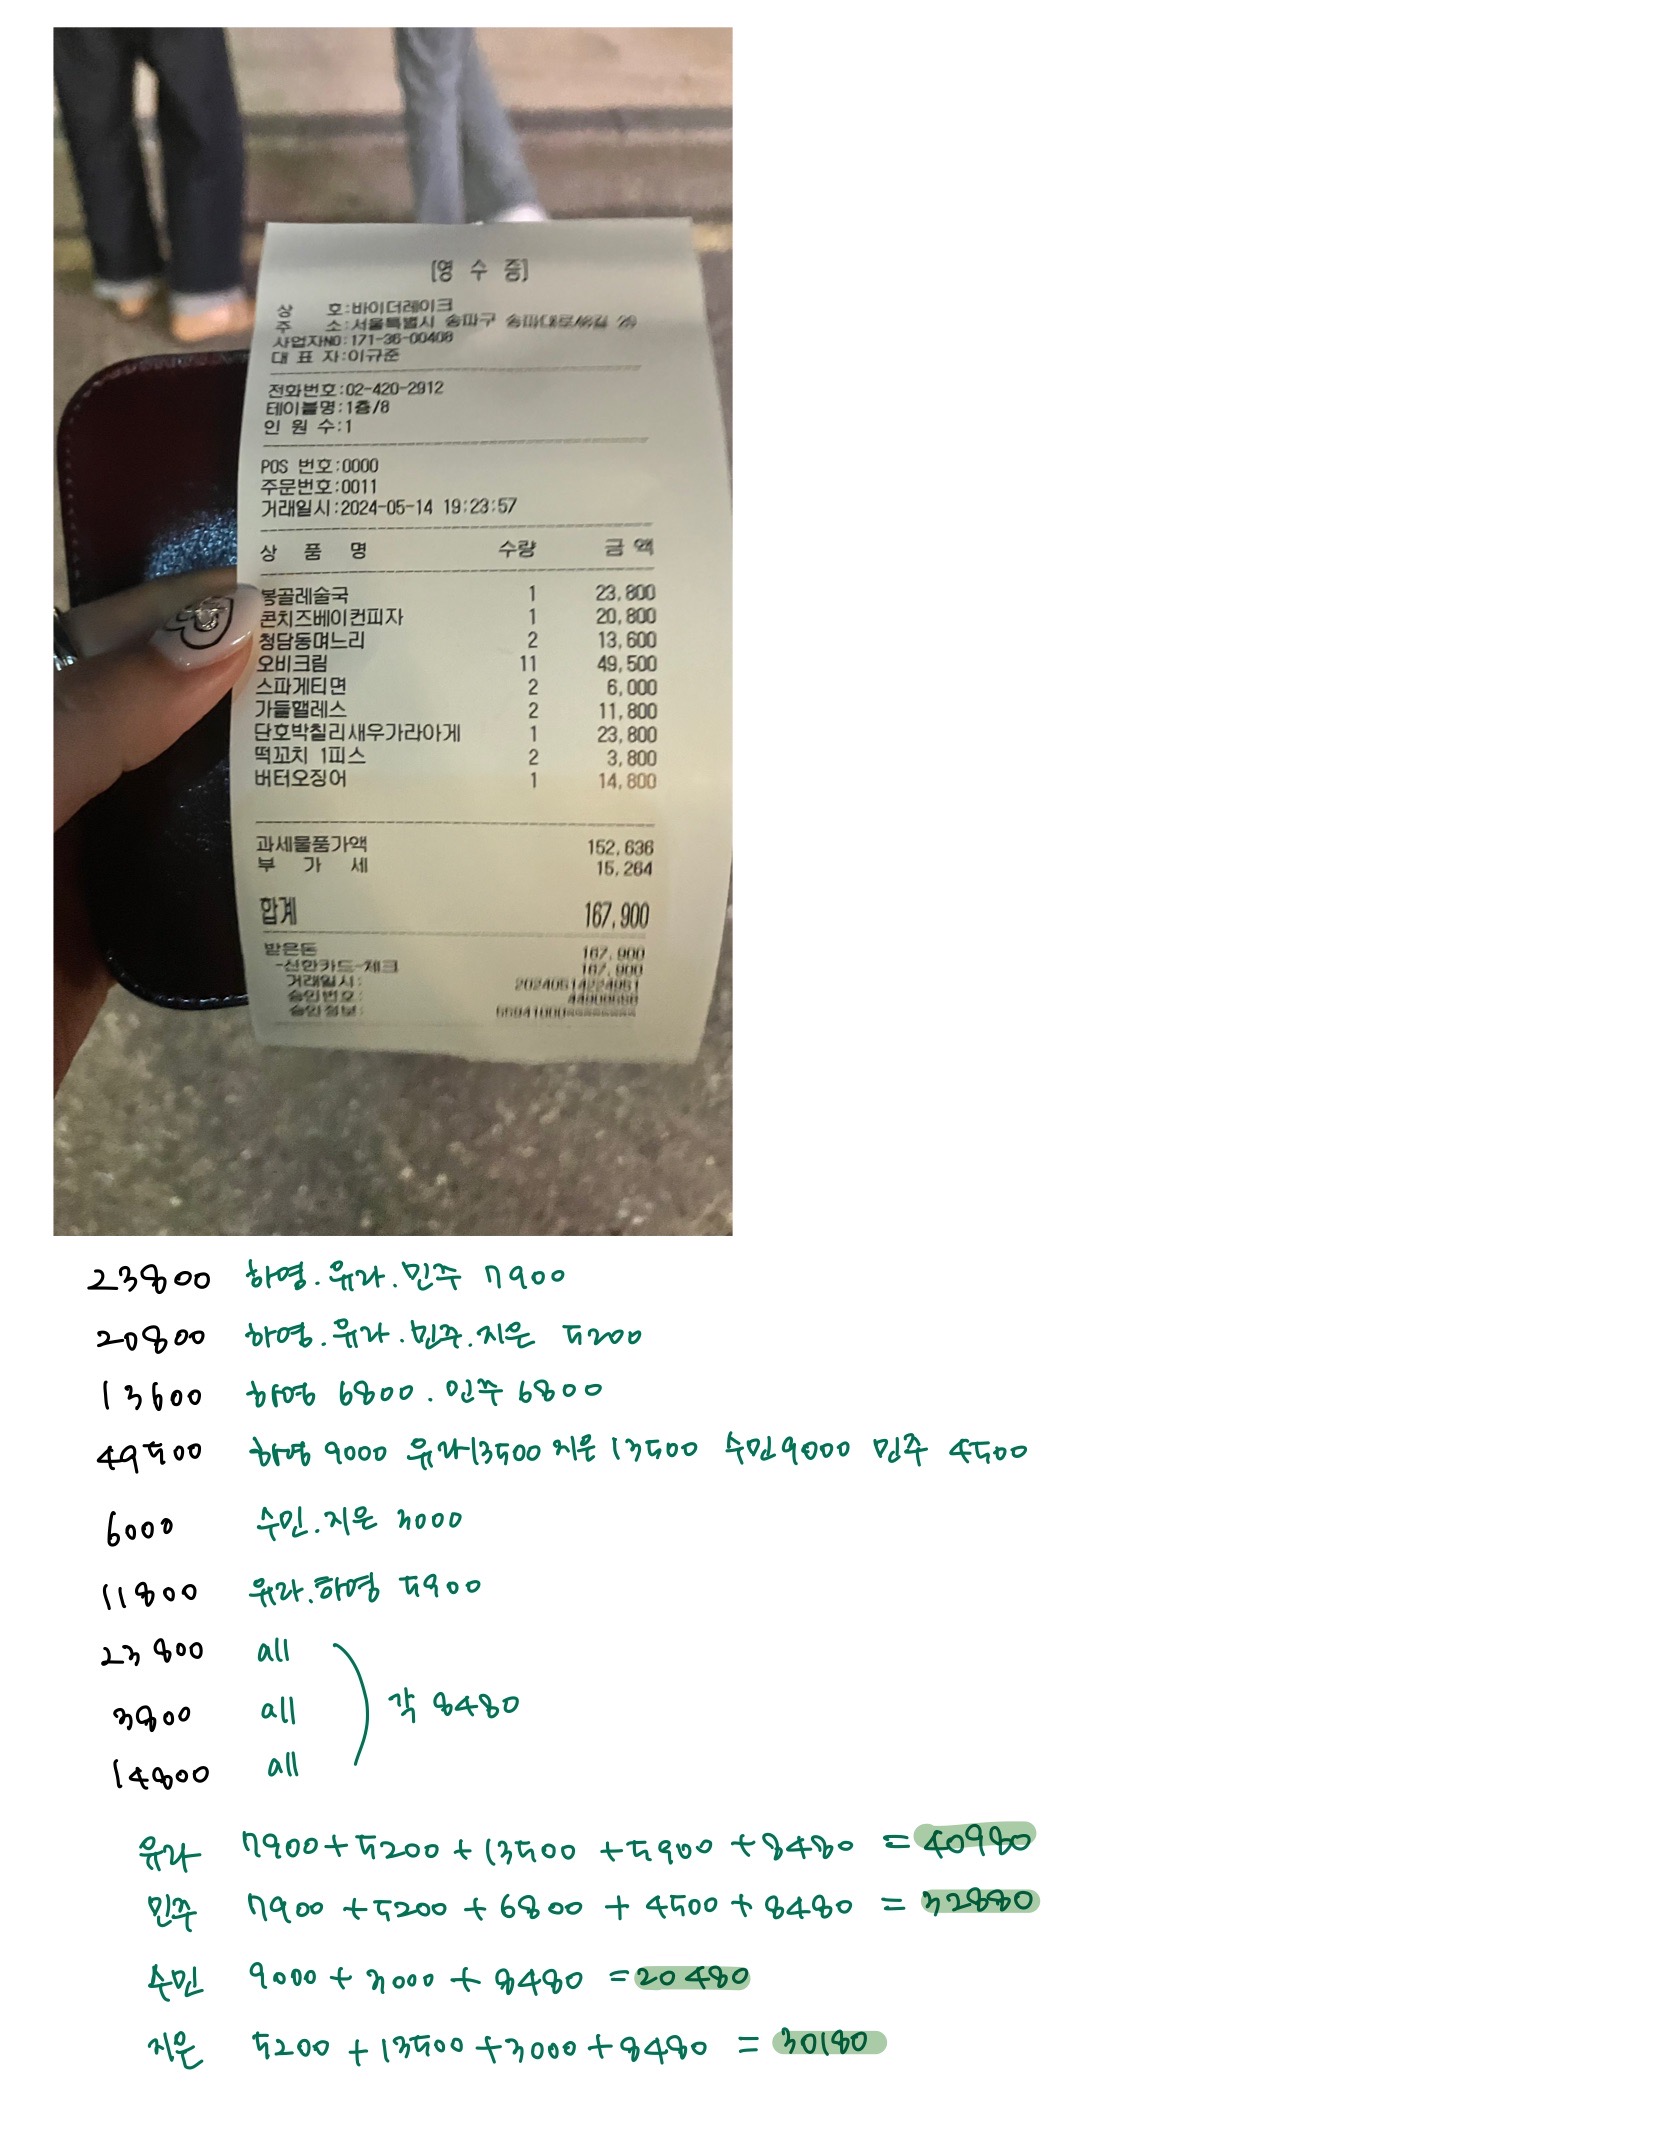 [영 수 증]
상 호:바이더레이크
주 소:서울특별시 송파구
사업자NO:171-36-00408
대 표 자:이규준
전화번호:02-420-2912
테이블명:1층/8
인 원 수:1
POS 번호:0000
주문번호:0011
거래일시:2024-05-14 19:23:57
상 품 명 수량 금 액
봉골레술국 1 23,800
콘치즈베이컨피자 1 20,800
청담동며느리 2 13,600
오비크림 11 49,500
스파게티면 2 6,000
가들핼레스 2 11,800
단호박칠리새우가라아게 1 23,800
떡꼬치 1피스 2 3,800
버터오징어 1 14,800
과세물품가액 152,636
부 가 세 15,264
합계 167,900
받은돈 167,900
-신한카드-체크 167,900
거래일시:
승인번호:
승인정보:
23800 하영.유라.민주 7900
20800 하영.유라.민주.지은 5200
13600 하영 6800 . 민주 6800
49500 하영 9000 유라13500 지은 13500 수민9000 민주 4500
6000 수민.지은 3000
11800 유라.하영 5900
23800 all
3800 all 각 8480
14800 all
유라 7900+5200+13500+5900+8480 = 40980
민주 7900+5200+6800+4500+8480 = 32880
수민 9000+3000+8480 = 20480
지은 5200+13500+3000+8480 = 30180